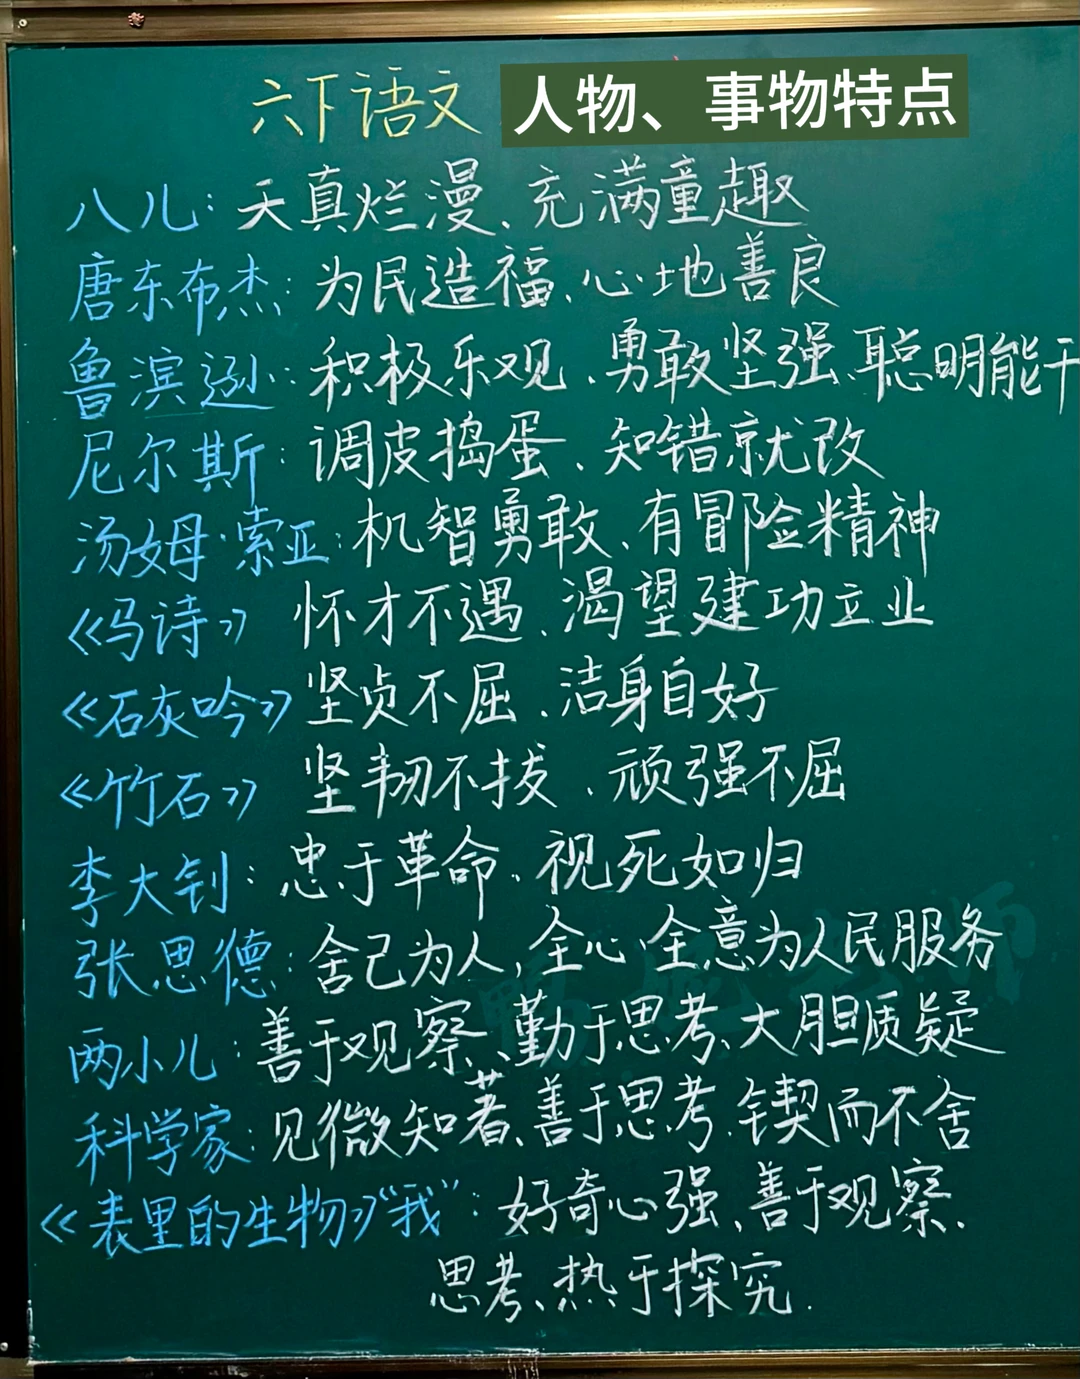 六下语文 人物、事物特点
八儿：天真烂漫、充满童趣
唐东布杰：为民造福、心地善良
鲁滨逊：积极乐观、勇敢坚强、聪明能干
尼尔斯：调皮捣蛋、知错就改
汤姆·索亚：机智勇敢、有冒险精神
《马诗》 怀才不遇、渴望建功立业
《石灰吟》坚贞不屈、洁身自好
《竹石》 坚韧不拔、顽强不屈
李大钊：忠于革命、视死如归
张思德：舍己为人，全心全意为人民服务
两小儿：善于观察、勤于思考、大胆质疑
科学家：见微知著、善于思考、锲而不舍
《表里的生物》“我”：好奇心强、善于观察、
思考、热于探究.